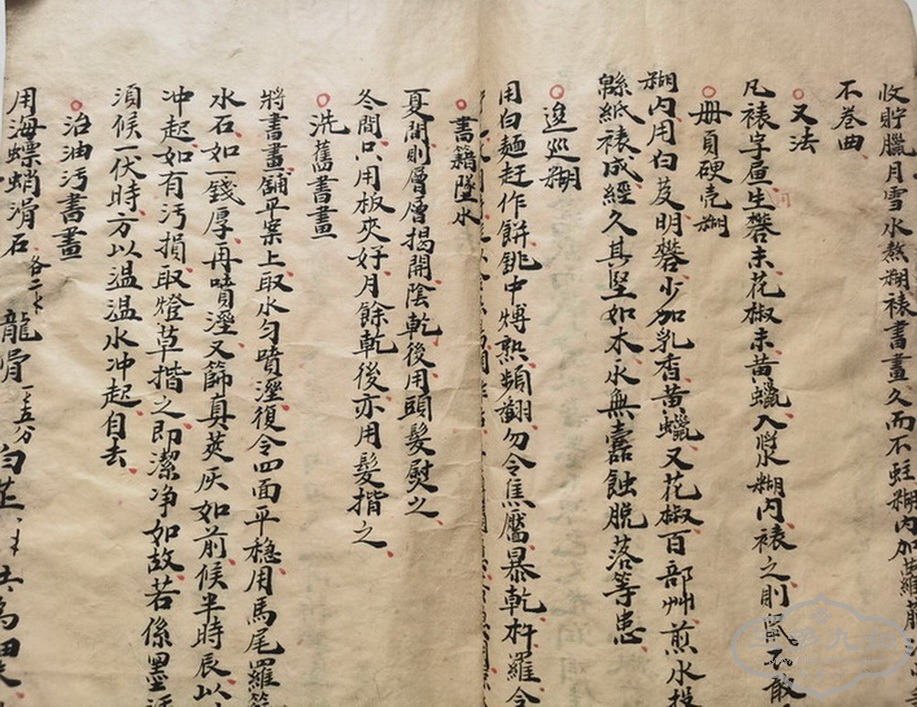 收貯臘月雪水熬糊裱書畫久而不蛀糊內加蘿
不卷曲
又法
凡裱字畫生礬末花椒末黃蠟入漿糊內裱之則鼠不敢
册頁硬壳糊
糊內用白芨明礬少加乳香黃蠟又花椒百部艸煎水投
緜紙裱成經久其堅如木永無蠹蝕脱落等患
逡巡糊
用白麵趕作餅銚中煿熟頻翻勿令焦黶暴乾杵羅令
書籍墜水
夏間則層層揭開陰乾後用頭髮熨之
冬間只用板夾好月餘乾後亦用髮揩之
洗舊書畫
將書畫鋪平案上取水勻噴溼復令四面平穩用馬尾羅篩
水石如一錢厚再噴溼又篩真炭灰如前候半時辰以
冲起如有污損取燈草揩之即潔净如故若係墨污
須候一伏時方以温温水冲起自去
治油污書畫
用海螵蛸滑石各二 龍骨一五分白芷